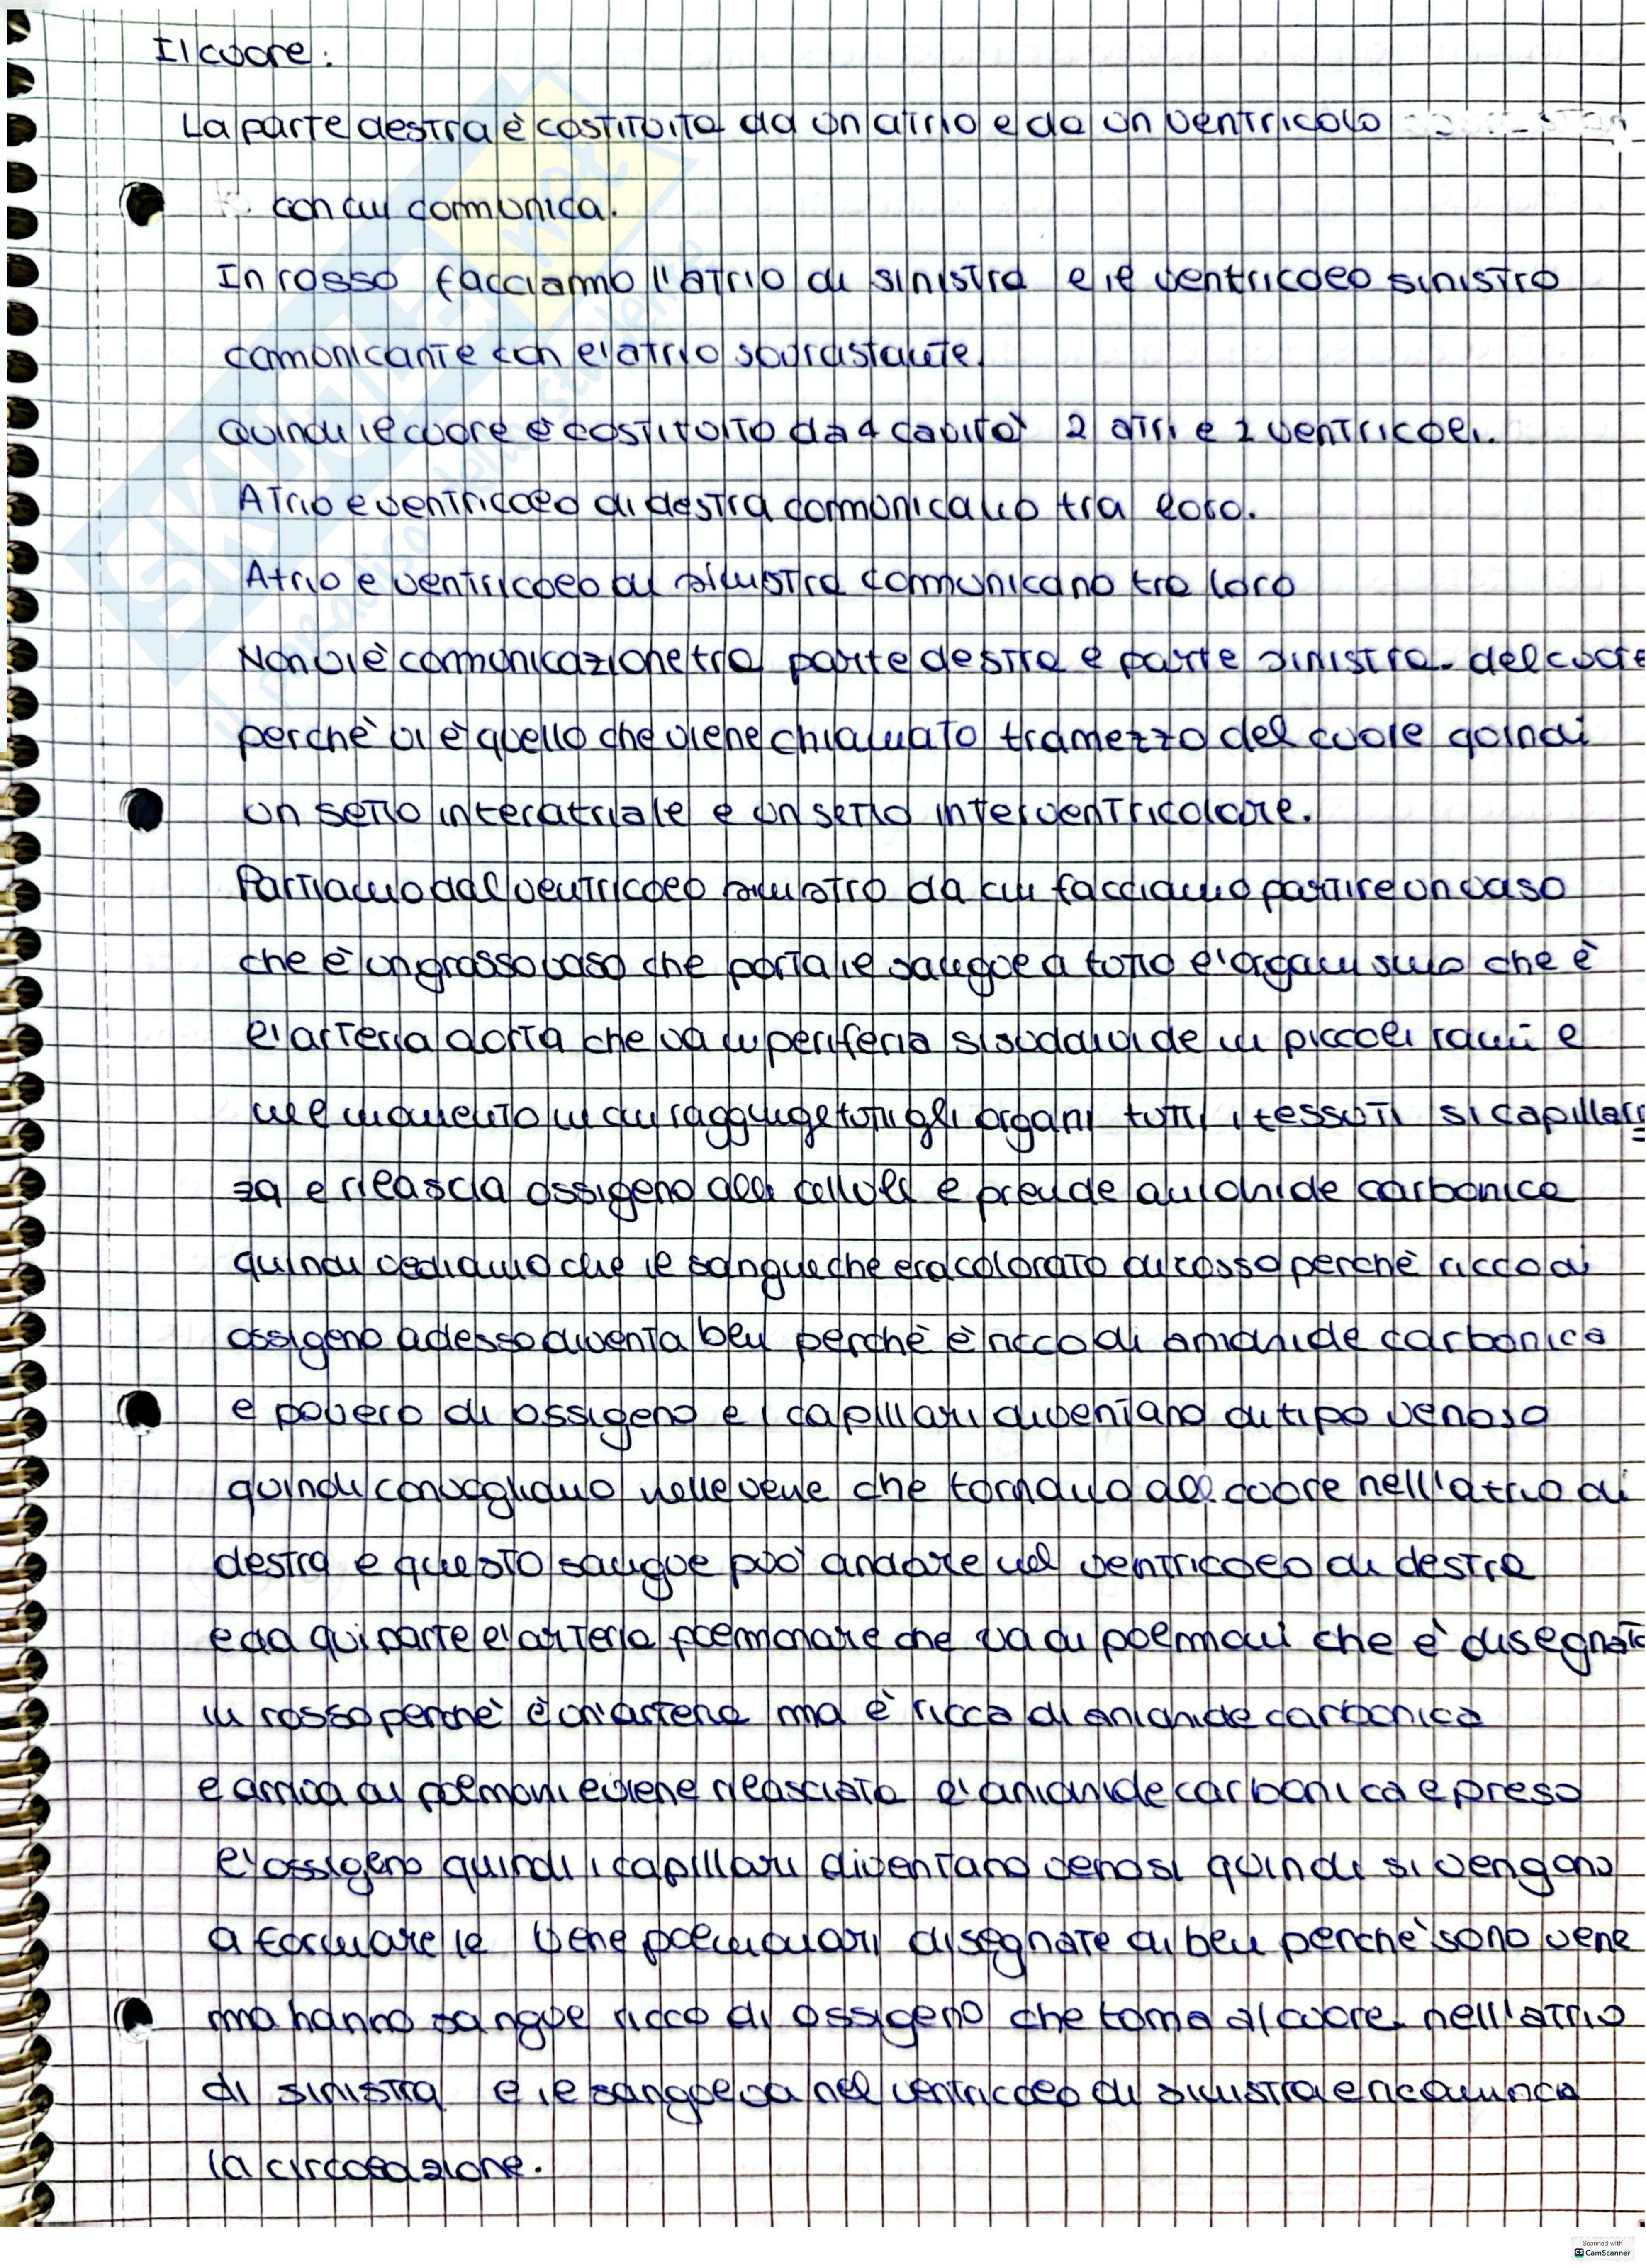 Il cuore:
La parte destra è costituita da un atrio e da un ventricolo
con cui comunica.
In rosso facciamo l'atrio di sinistra e il ventricolo sinistro
comunicante con l'atrio sovrastante.
Quindi il cuore è costituito da 4 cavità 2 atri e 2 ventricoli.
Atrio e ventricolo di destra comunicano tra loro.
Atrio e ventricolo di sinistra comunicano tra loro
Non vi è comunicazione tra parte destra e parte sinistra del cuore
perchè vi è quello che viene chiamato tramezzo del cuore quindi
un setto interatriale e un setto interventricolare.
Partiamo dal ventricolo sinistro da cui facciamo partire un vaso
che è un grosso vaso che porta il sangue a tutto l'organismo che è
l'arteria aorta che va in periferia si suddivide in piccoli rami e
nel momento in cui raggiunge tutti gli organi tutti i tessuti si capillariz
za e rilascia ossigeno alle cellule e prende anidride carbonica
quindi vediamo che il sangue che era colorato di rosso perchè ricco di
ossigeno adesso diventa blu perchè è ricco di anidride carbonica
e povero di ossigeno e i capillari diventano di tipo venoso
quindi convogliano nelle vene che tornano al cuore nell'atrio di
destra e questo sangue può andare nel ventricolo di destra
e da qui parte l'arteria polmonare che va ai polmoni che è disegnata
in rosso perchè è un'arteria ma è ricca di anidride carbonica
e arriva ai polmoni e viene rilasciata l'anidride carbonica e preso
l'ossigeno quindi i capillari diventano venosi quindi si vengono
a formare le vene polmonari disegnate di blu perchè sono vene
ma hanno sangue ricco di ossigeno che torna al cuore nell'atrio
di sinistra e il sangue va nel ventricolo di sinistra e ricomincia
la circolazione.
SKUOLA.net
il paradiso dello studente
Scanned with
CamScanner